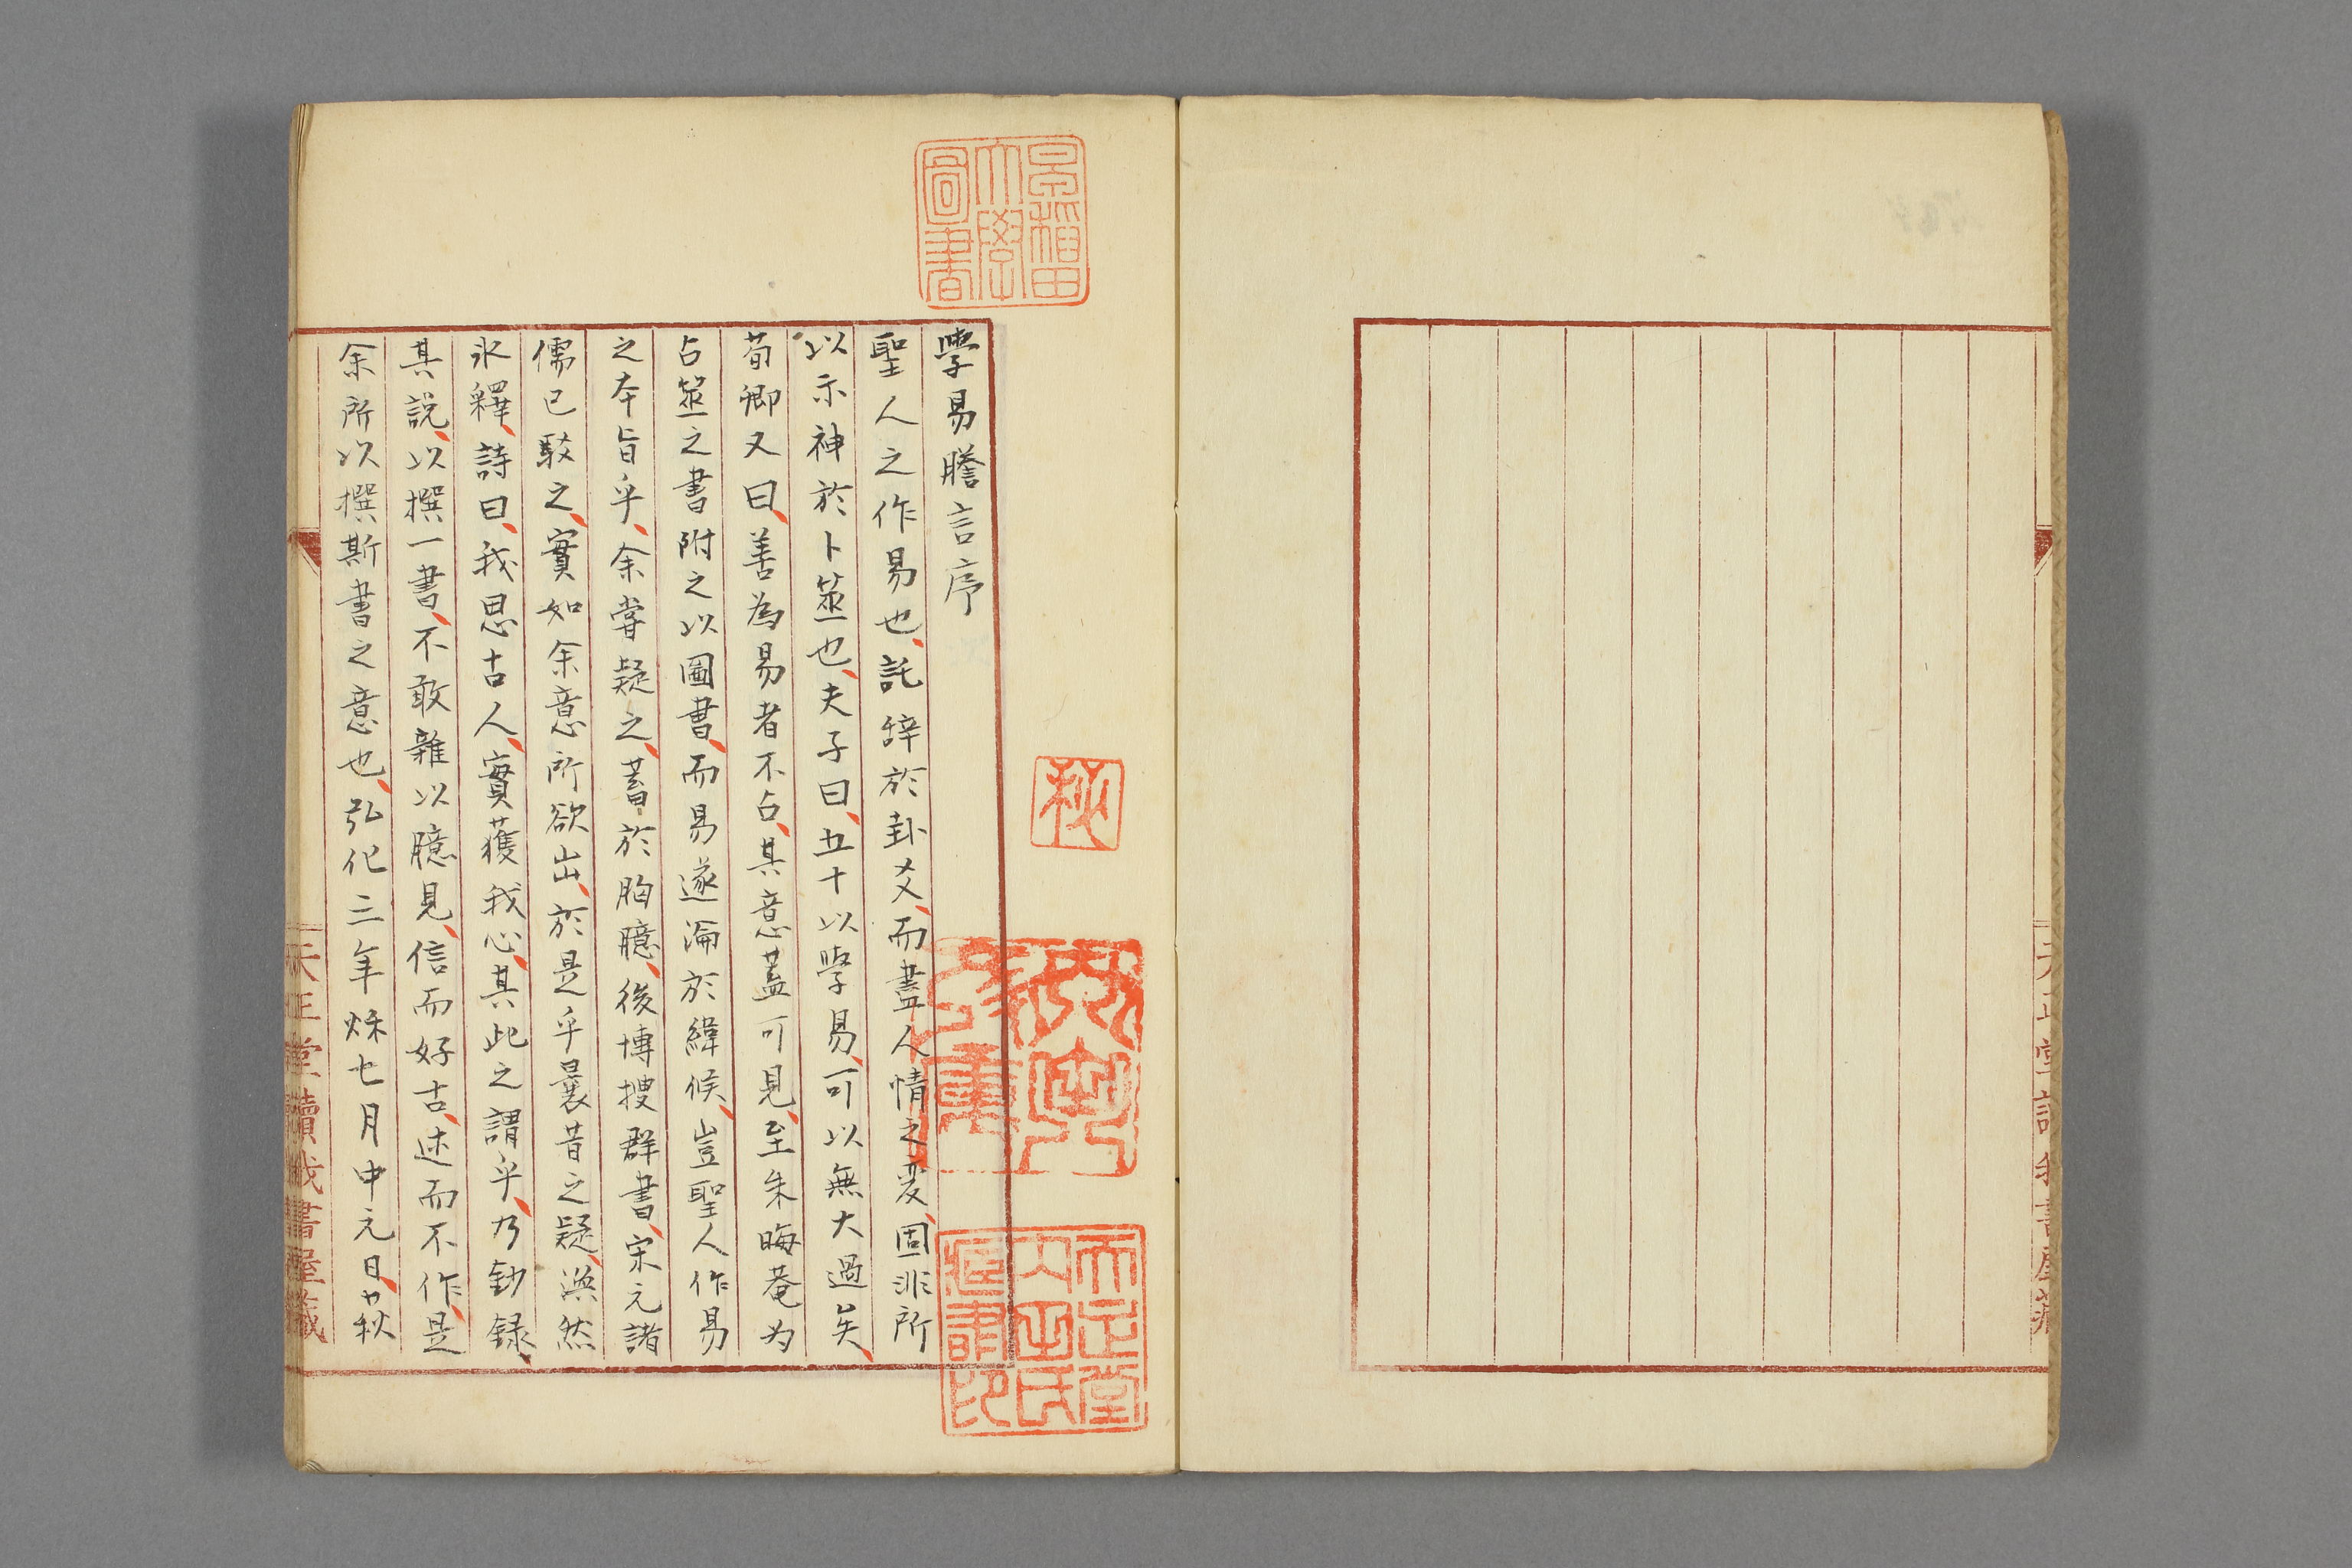 學易謄言序
聖人之作易也、託辞於卦爻、而盡人情之変、固非所
以示神於卜筮也、夫子曰、五十以學易、可以無大過矣、
荀卿又曰、善為易者不占、其意蓋可見、至朱晦菴为
占筮之書附之以圖書、而易遂淪於緯候、豈聖人作易
之本旨乎、余嘗疑之、蓄於胸臆、後博搜群書、宋元諸
儒已駁之、實如余意所欲出、於是乎曩昔之疑、渙然
氷釋、詩曰、我思古人、實獲我心、其此之謂乎、乃鈔録
其説、以撰一書、不敢雜以臆見、信而好古、述而不作、是
余所以撰斯書之意也、弘化三年秌七月中元日、萩
天正堂讀我書屋藏
早稲田
大學
圖書
天正堂
藏書印
天正堂讀我書屋藏